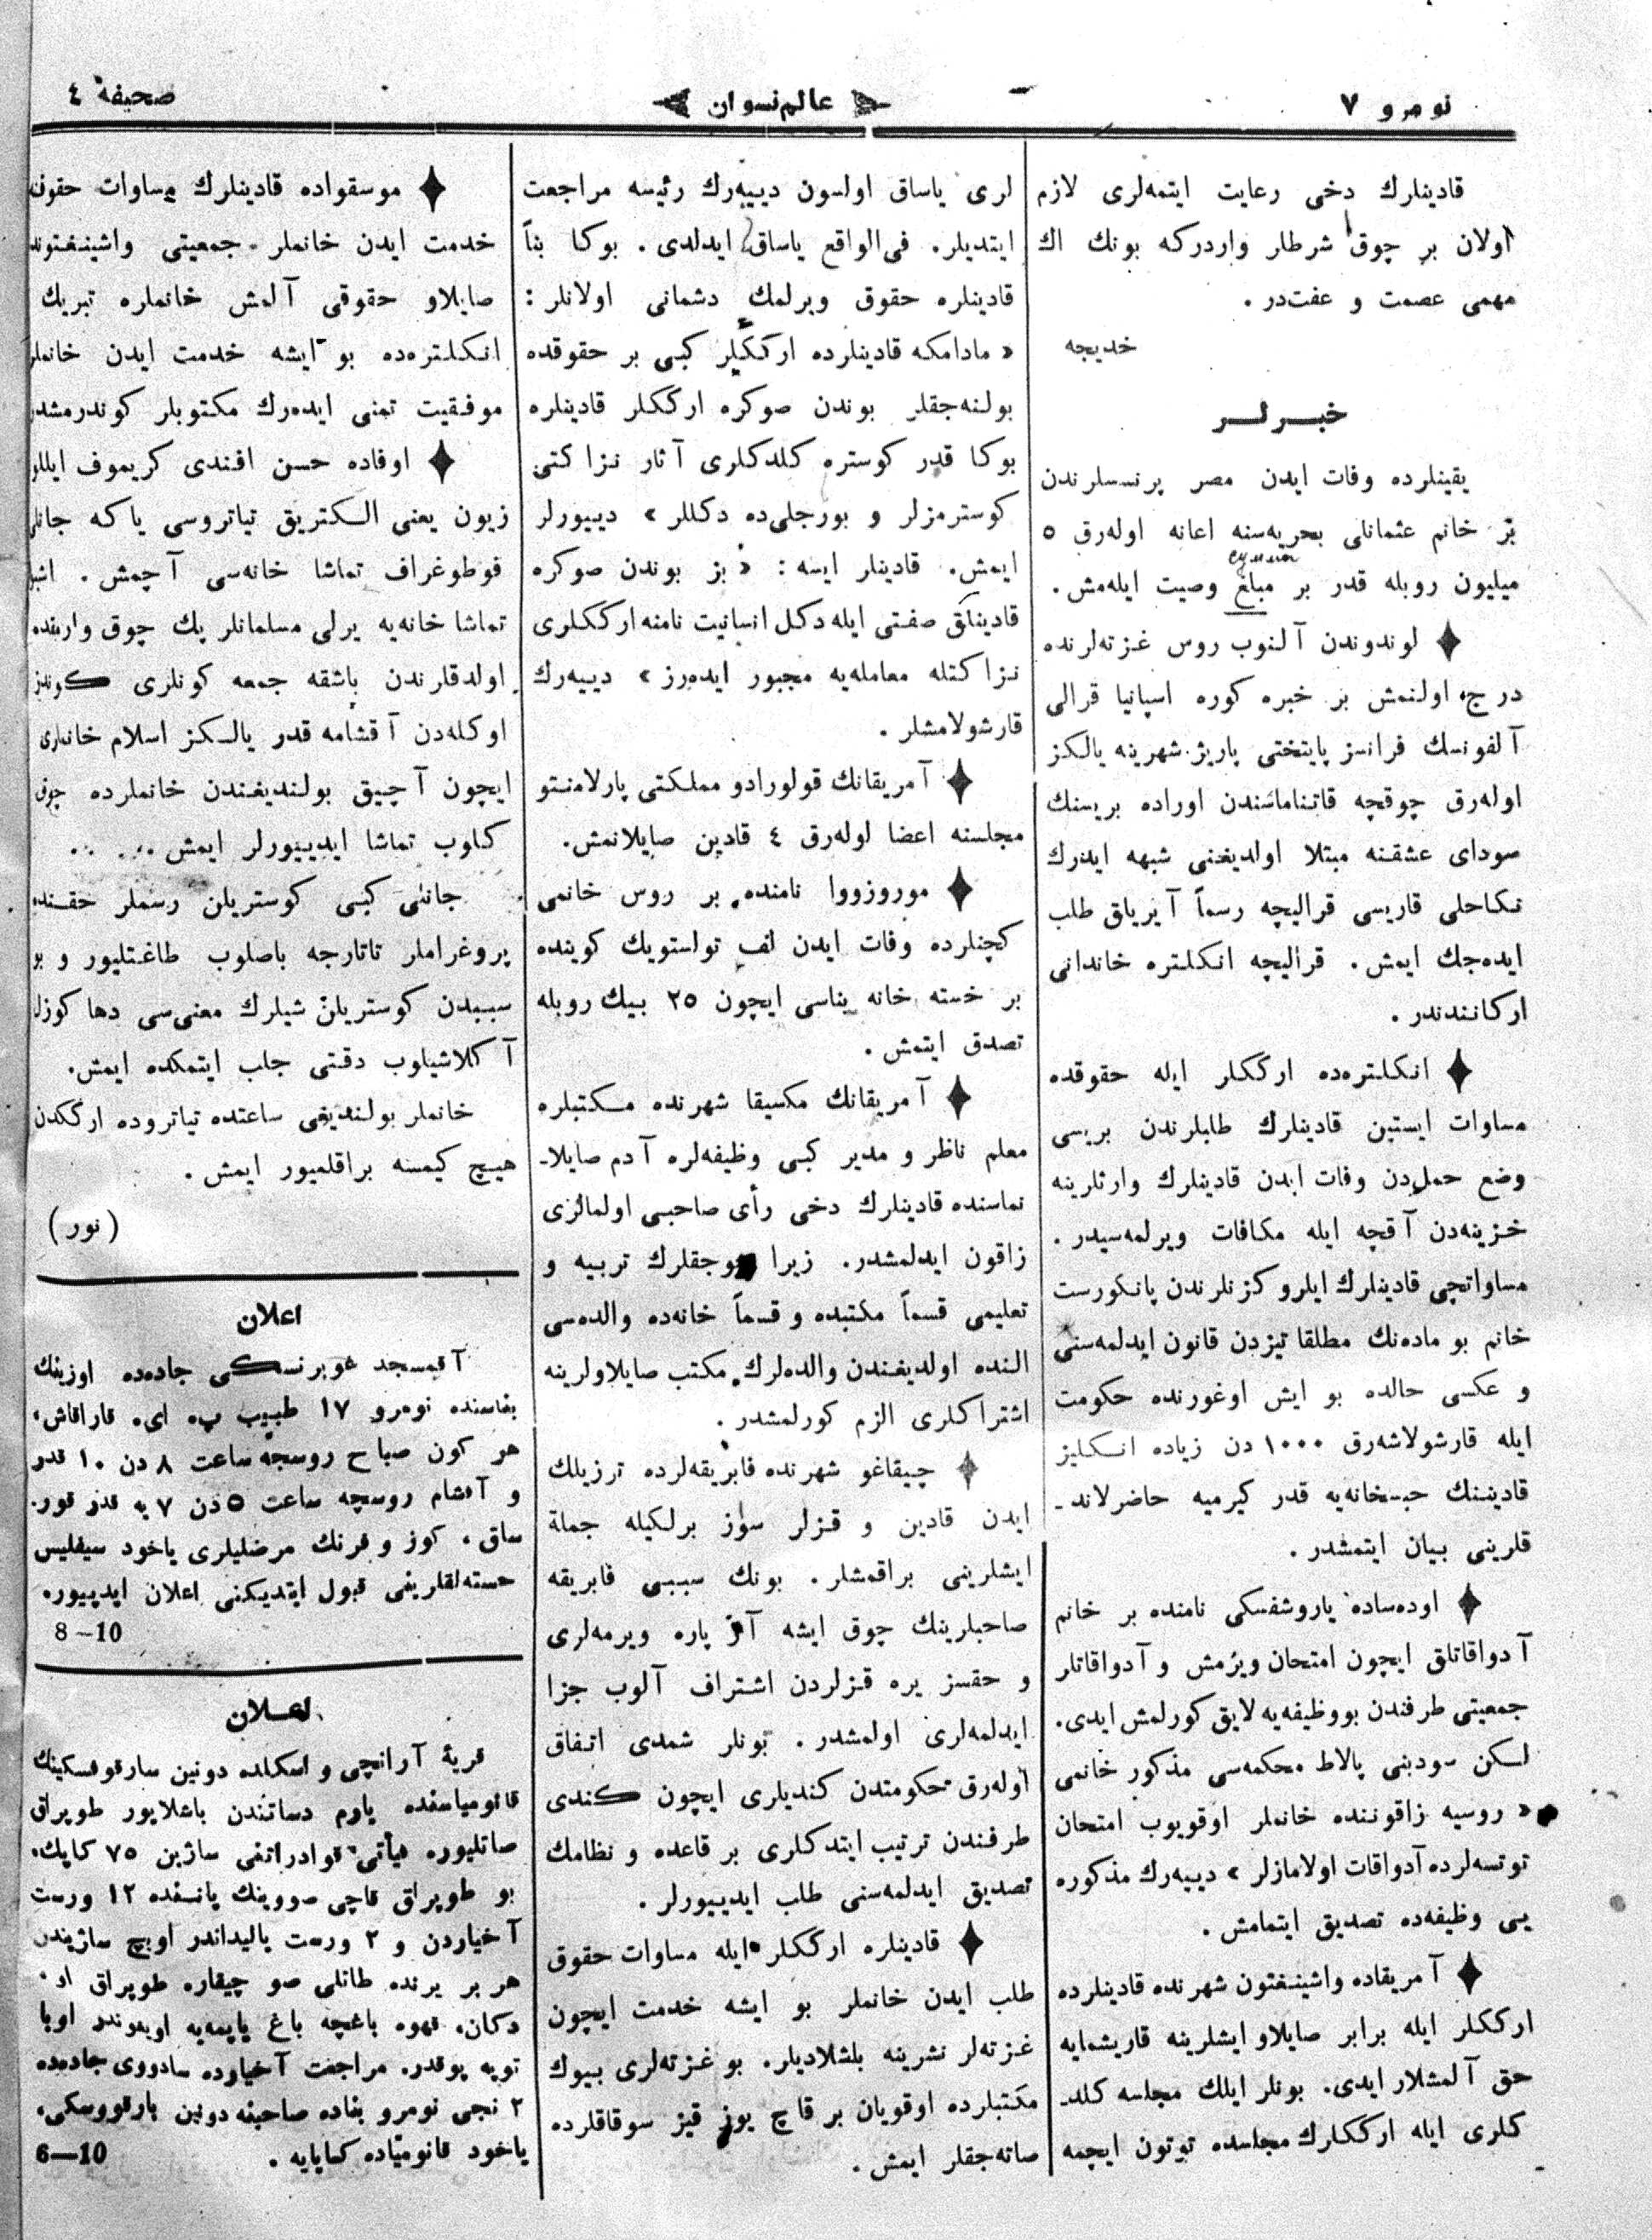 نومرو ٧
عالم نسوان
صحیفهٔ ٤
قادینلرك دخی رعایت ایتمه‌لری لازم
اولان بر چوق شرطلر واردركه بونك اك
مهمی عصمت و عفت‌در .
خدیجه
خبرلر
یقینلرده وفات ایدن مصر پرنسسلرندن
بر خانم عثمانلی بحریه‌سنه اعانه اوله‌رق ٥
сумма
میلیون روبله قدر بر مبلغ وصیت ایله‌مش .
لوندوندن آلنوب روس غزته‌لرنده
درج اولنمش بر خبره كوره اسپانیا قرالی
آلفونسك فرانسز پایتختی پاریژ شهرینه یالكز
اوله‌رق چوقچه قاتناماسندن اوراده بریسنك
سودای عشقنه مبتلا اولدیغنی شبهه ایدرك
نكاحلی قاریسی قرالیچه رسماً آیریلق طلب
ایده‌جك ایمش . قرالیچه انكلتره خاندانی
اركانندندر .
انكلتره‌ده ارككلر ایله حقوقده
مساوات ایستین قادینلرك طلبلرندن بریسی
وضع حمل‌دن وفات ایدن قادینلرك وارثلرینه
خزینه‌دن آقچه ایله مكافات ویرلمه‌سیدر .
مساواتچی قادینلرك ایلرو كزنلرندن پانكورست
خانم بو ماده‌نك مطلقا تیزدن قانون ایدلمه‌سنی
و عكسی حالده بو ایش اوغورنده حكومت
ایله قارشولاشه‌رق ١٠٠٠ دن زیاده انكلیز
قادیننك حبسخانه‌یه قدر كیرمیه حاضرلاند-
قلرینی بیان ایتمشدر .
اوده‌ساده یاروشفسكی نامنده بر خانم
آدواقاتلق ایچون امتحان ویرمش و آدواقاتلر
جمعیتی طرفندن بووظیفه‌یه لایق كورلمش ایدی.
لكن سودبنی پالاط محكمه‌سی مذكور خانمی
« روسیه زاقوننده خانملر اوقویوب امتحان
توتسه‌لرده آدواقات اولامازلر » دییه‌رك مذكوره
یی وظیفه‌ده تصدیق ایتمامش .
آمریقاده واشینغتون شهرنده قادینلرده
ارككلر ایله برابر صایلاو ایشلرینه قاریشمایه
حق آلمشلار ایدی. بونلر ایلك مجلسه كلد-
كلری ایله ارككلرك مجلسده توتون ایچمه
لری یاساق اولسون دییه‌رك رئیسه مراجعت
ایتدیلر. فی‌الواقع یاساق ایدلدی . بوكا بناً
قادینلره حقوق ویرلمك دشمانی اولانلر :
« مادامكه قادینلرده ارككلر كبی بر حقوقده
بولنه‌جقلر بوندن صوكره ارككلر قادینلره
بوكا قدر كوستره كلدكلری آثار نزاكتی
كوسترمزلر و بورجلی‌ده دكللر » دییورلر
ایمش. قادینلر ایسه : « بز بوندن صوكره
قادینلق صفتی ایله دكل انسانیت نامنه ارككلری
نزاكتله معامله‌یه مجبور ایده‌رز » دییه‌رك
قارشولامشلر .
آمریقانك قولورادو مملكتی پارلامنتو
مجلسنه اعضا اوله‌رق ٤ قادین صایلانمش.
موروزووا نامنده بر روس خانمی
كچنلرده وفات ایدن لف تولستویك كوینده
بر خسته خانه بناسی ایچون ٢٥ بیك روبله
تصدق ایتمش .
آمریقانك مكسیقا شهرنده مكتبلره
معلم ناظر و مدیر كبی وظیفه‌لره آدم صایلا-
نماسنده قادینلرك دخی رأی صاحبی اولمالری
زاقون ایدلمشدر. زیرا چوجقلرك تربیه و
تعلیمی قسماً مكتبده و قسماً خانه‌ده والده‌سی
النده اولدیغندن والده‌لرك مكتب صایلاولرینه
اشتراكلری الزم كورلمشدر .
چیقاغو شهرنده فابریقه‌لرده ترزیلك
ایدن قادین و قزلر سوز برلكیله جملة
ایشلرینی براقمشلر. بونك سببی فابریقه
صاحبلرینك چوق ایشه آز پاره ویرمه‌لری
و حقسز یره قزلردن اشتراف آلوب جزا
ایدلمه‌لری اولمشدر. بونلر شمدی اتفاق
اوله‌رق حكومتدن كندیلری ایچون كندی
طرفندن ترتیب ایتدكلری بر قاعده و نظامك
تصدیق ایدلمه‌سنی طلب ایدییورلر .
قادینلره ارككلر ایله مساوات حقوق
طلب ایدن خانملر بو ایشه خدمت ایچون
غزته‌لر نشرینه بلشلادیلر. بو غزته‌لری بیوك
مكتبلرده اوقویان بر قاچ یوز قیز سوقاقلرده
صاته‌جقلر ایمش .
موسقواده قادینلرك مساوات حقوقه
خدمت ایدن خانملر جمعیتی واشینغتونده
صایلاو حقوقی آلمش خانملره تبریك
انكلتره‌ده بو ایشه خدمت ایدن خانملر
موفقیت تمنی ایده‌رك مكتوبلر كوندرمشدر
اوفاده حسن افندی كریموف ایللو
زیون یعنی الكتریق تیاتروسی یا كه جانلی
فوطوغراف تماشا خانه‌سی آچمش . اشبو
تماشا خانه‌یه یرلی مسلمانلر پك چوق وارمقده
اولدقلرندن باشقه جمعه كونلری كوندز
اوكله‌دن آقشامه قدر یالكز اسلام خانملری
ایچون آچیق بولندیغندن خانملرده چوق
كلوب تماشا ایدییورلر ایمش . . . . .
جانلی كبی كوستریلن رسملر حقنده
پروغراملر تاتارجه باصلوب طاغتلیور و بو
سببدن كوستریلن شیلرك معنی‌سی دها كوزل
آكلاشیلوب دقتی جلب ایتمكده ایمش.
خانملر بولندیغی ساعتده تیاتروده ارككدن
هیچ كیمسه براقلمیور ایمش .
(نور)
اعلان
آقمسجد غوبرنسكی جاده‌ده اوزینك
بناسنده نومرو ١٧ طبیب پ. ای. قاراقاش،
هر كون صباح روسجه ساعت ٨ دن ١٠ قدر
و آقشام روسچه ساعت ٥ دن ٧ یه قدر قور.
ساق ، كوز و فرنك مرضلیلری یاخود سیفلیس
خسته‌لقلرینی قبول ایتدیكنی اعلان ایدییور.
8—10
اعلان
قریهٔ آرانچی و اسكلده دونین سارقوفسكینك
قانومیاسنده یارم دساتندن باشلایور طوپراق
صاتلیور. فیأتی قوادراتنی ساژین ٧٥ كاپك.
بو طوپراق قاچی صووینك یانسنده ١٢ ورست
آخیاردن و ٢ ورست یالیداندر اوچ ساژیندن
هر بر یرنده طاتلی صو چیقاره طوپراق
دكان، قهوه باغچه باغ یاپمه‌یه اویغوندر اوبا
توپه یوقدر. مراجعت آخیارده سادووی جاده‌ده
٢ نجی نومرو بناده صاحبنه دونین بارقووسكی،
یاخود قانومیاده كمایایه .
6—10